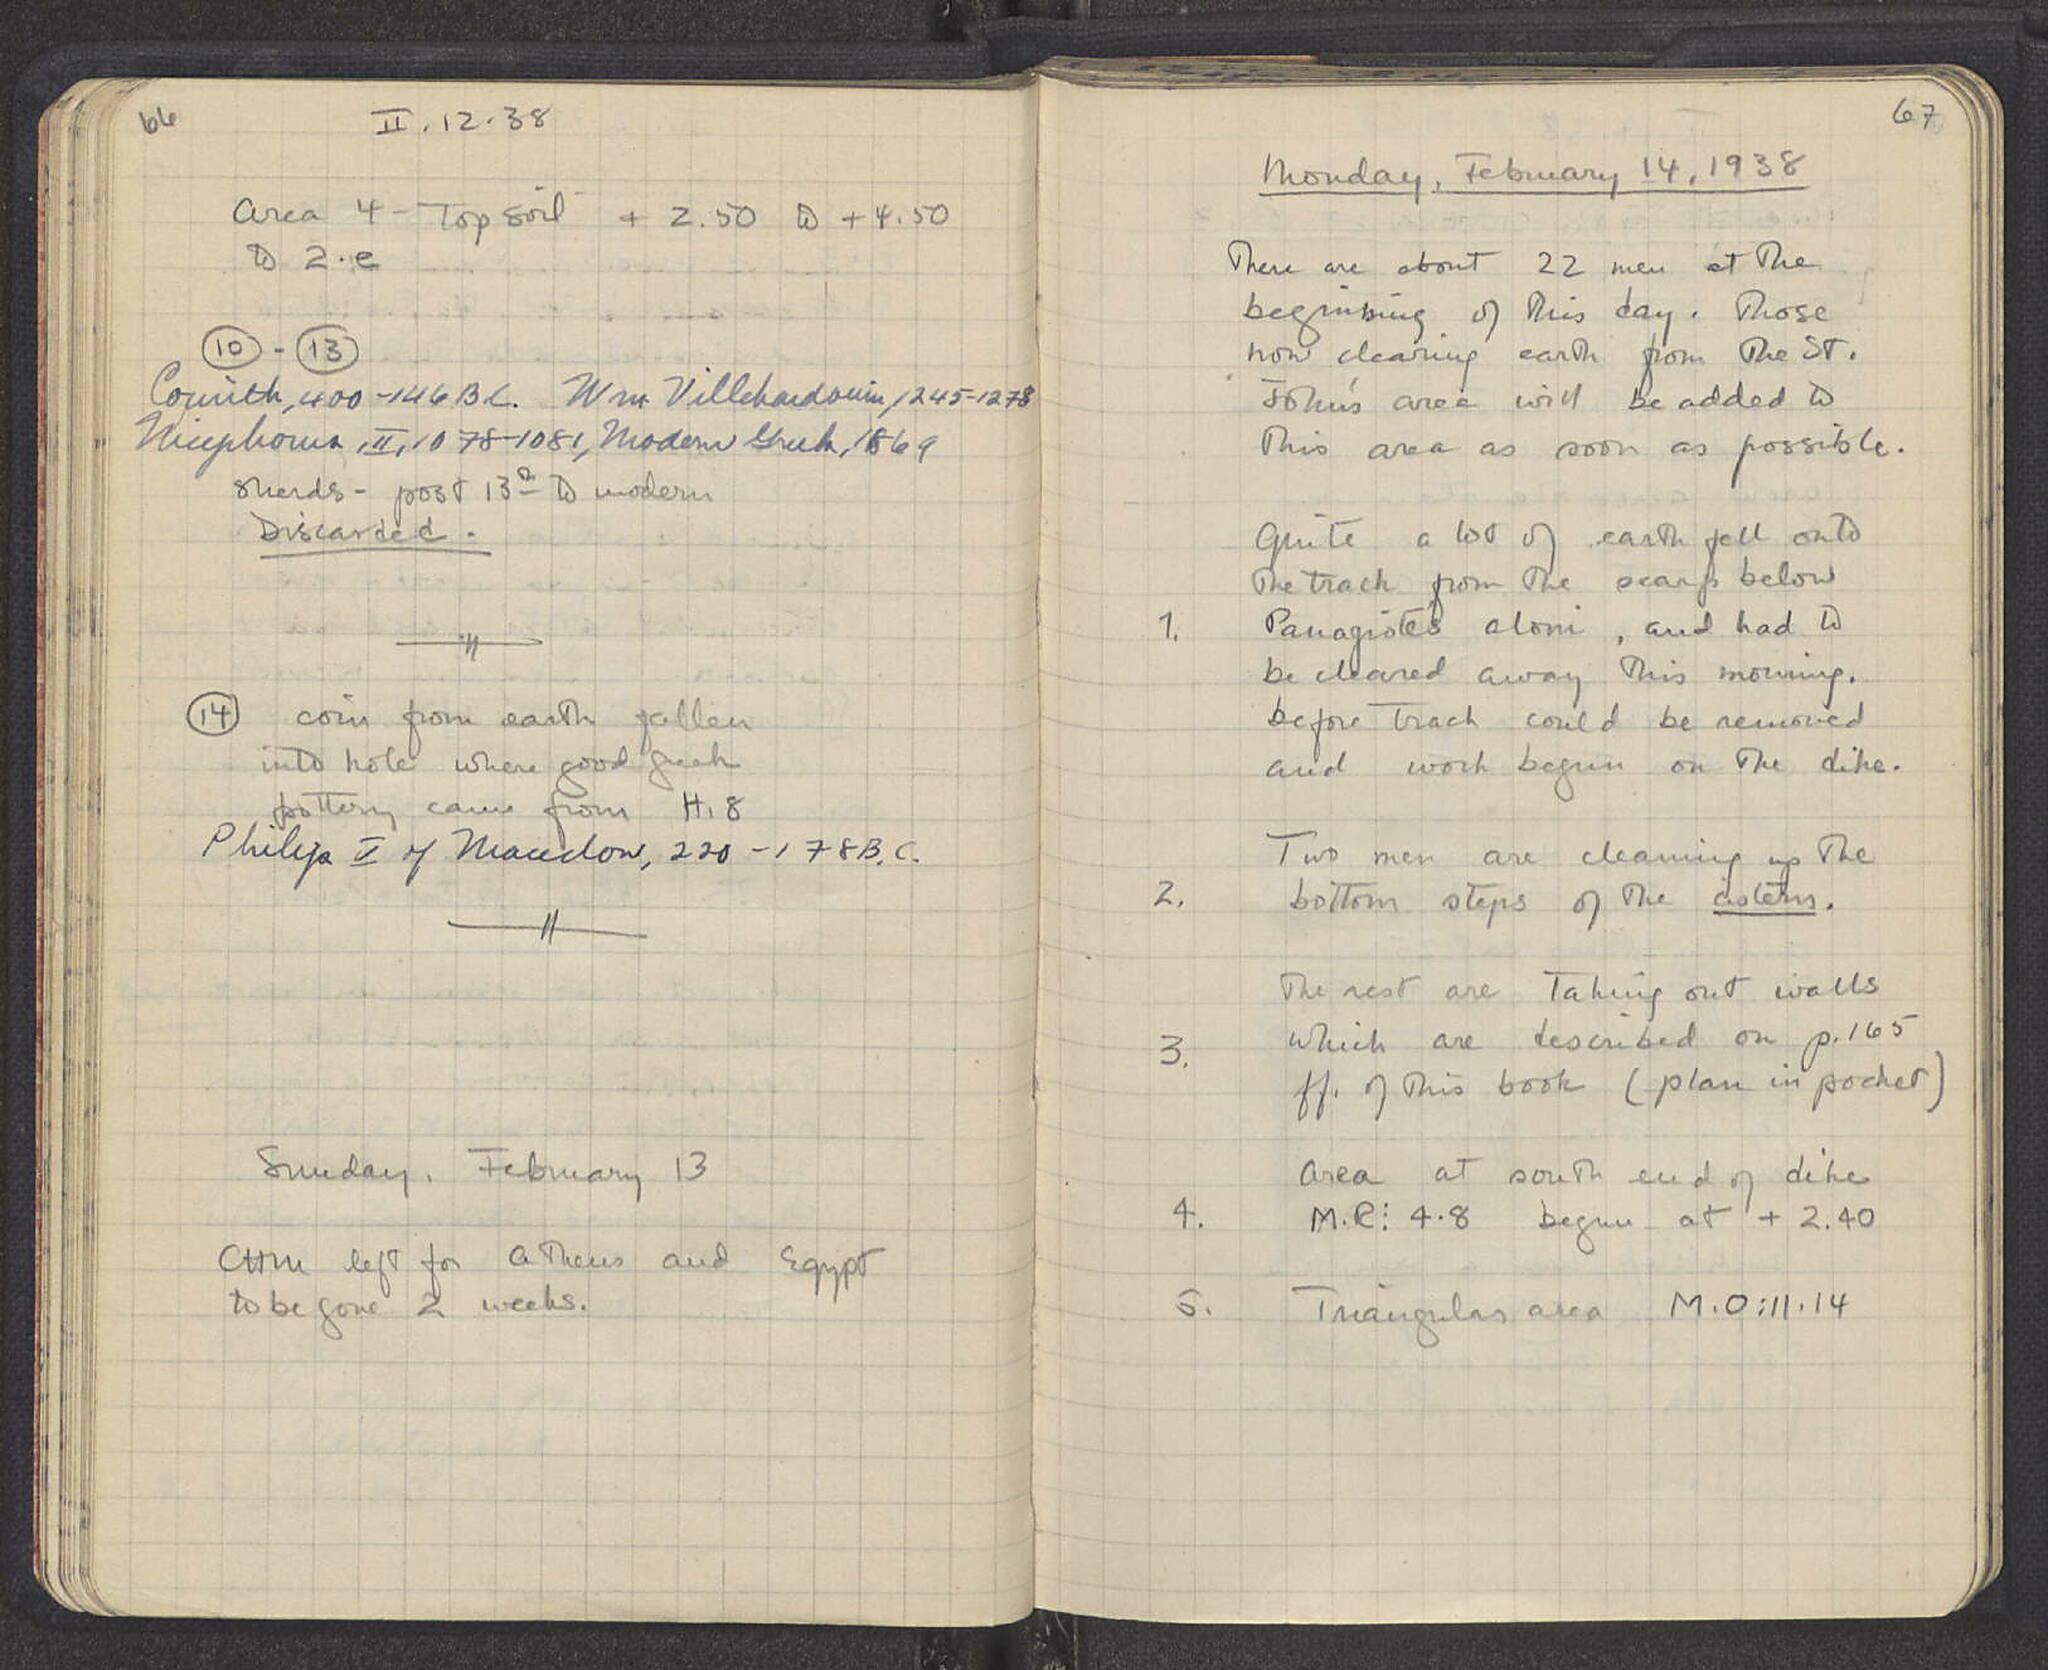 66
II.12.38
Area 4 - Top soil + 2.50 to + 4.50
to 2.e
10 - 13
Corinth, 400-146 B.C. Wm Villehardouin, 1245-1278
Nicephorus, III, 1078-1081, Modern Greek, 1869
sherds - post 13th to modern
Discarded.
14 coin from earth fallen
into hole where good Greek
pottery came from H.8
Philip V of Macedon, 220-178 B.C.
Sunday, February 13
CHM left for Athens and Egypt
to be gone 2 weeks.
67
Monday, February 14, 1938
There are about 22 men at the
beginning of this day. Those
now clearing earth from the St.
John's area will be added to
this area as soon as possible.
Quite a lot of earth fell onto
the track from the scarp below
1. Panagiotes aloni, and had to
be cleared away this morning.
before track could be removed
and work begun on the dike.
Two men are cleaning up the
2. bottom steps of the cistern.
The rest are taking out walls
3. which are described on p.165
ff. of this book (plan in pocket)
Area at south end of dike
4. M.R: 4.8 begun at + 2.40
5. Triangular area M.O:11.14